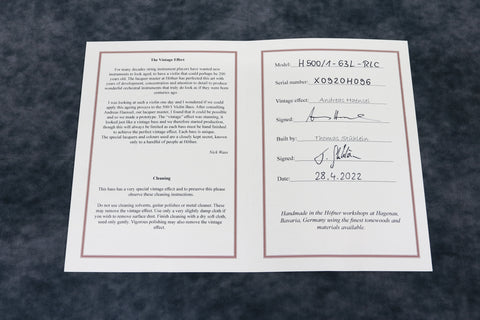 The Vintage Effect
For many decades string instrument players have wanted new
instruments to look aged, to have a violin that could perhaps be 200
years old. The lacquer master at Höfner has perfected this art with
years of development, concentration and attention to detail to produce
wonderful orchestral instruments that truly do look as if they were born
centuries ago.
I was looking at such a violin one day and I wondered if we could
apply this ageing process to the 500/1 Violin Bass. After consulting
Andreas Haensel, our lacquer master, I found that it could be possible
and so we made a prototype. The "vintage" effect was stunning, it
looked just like a vintage bass and we therefore started production,
though this will always be limited as each bass must be hand finished
to achieve the perfect vintage effect. Each bass is unique.
The special lacquers and colours used are a closely kept secret, known
only to a handful of people at Höfner.
Nick Wass
Cleaning
This bass has a very special vintage effect and to preserve this please
observe these cleaning instructions.
Do not use cleaning solvents, guitar polishes or metal cleaner. These
may remove the vintage effect. Use only a very slightly damp cloth if
you wish to remove surface dust. Finish cleaning with a dry soft cloth,
used only gently. Vigorous polishing may also remove the vintage
effect.
Model: H500/1-63L-RLC
Serial number: X0920H096
Vintage effect: Andreas Haensel
Signed:
Built by: Thomas Stühlein
Signed:
Date: 28.4.2022
Handmade in the Höfner workshops at Hagenau,
Bavaria, Germany using the finest tonewoods and
materials available.